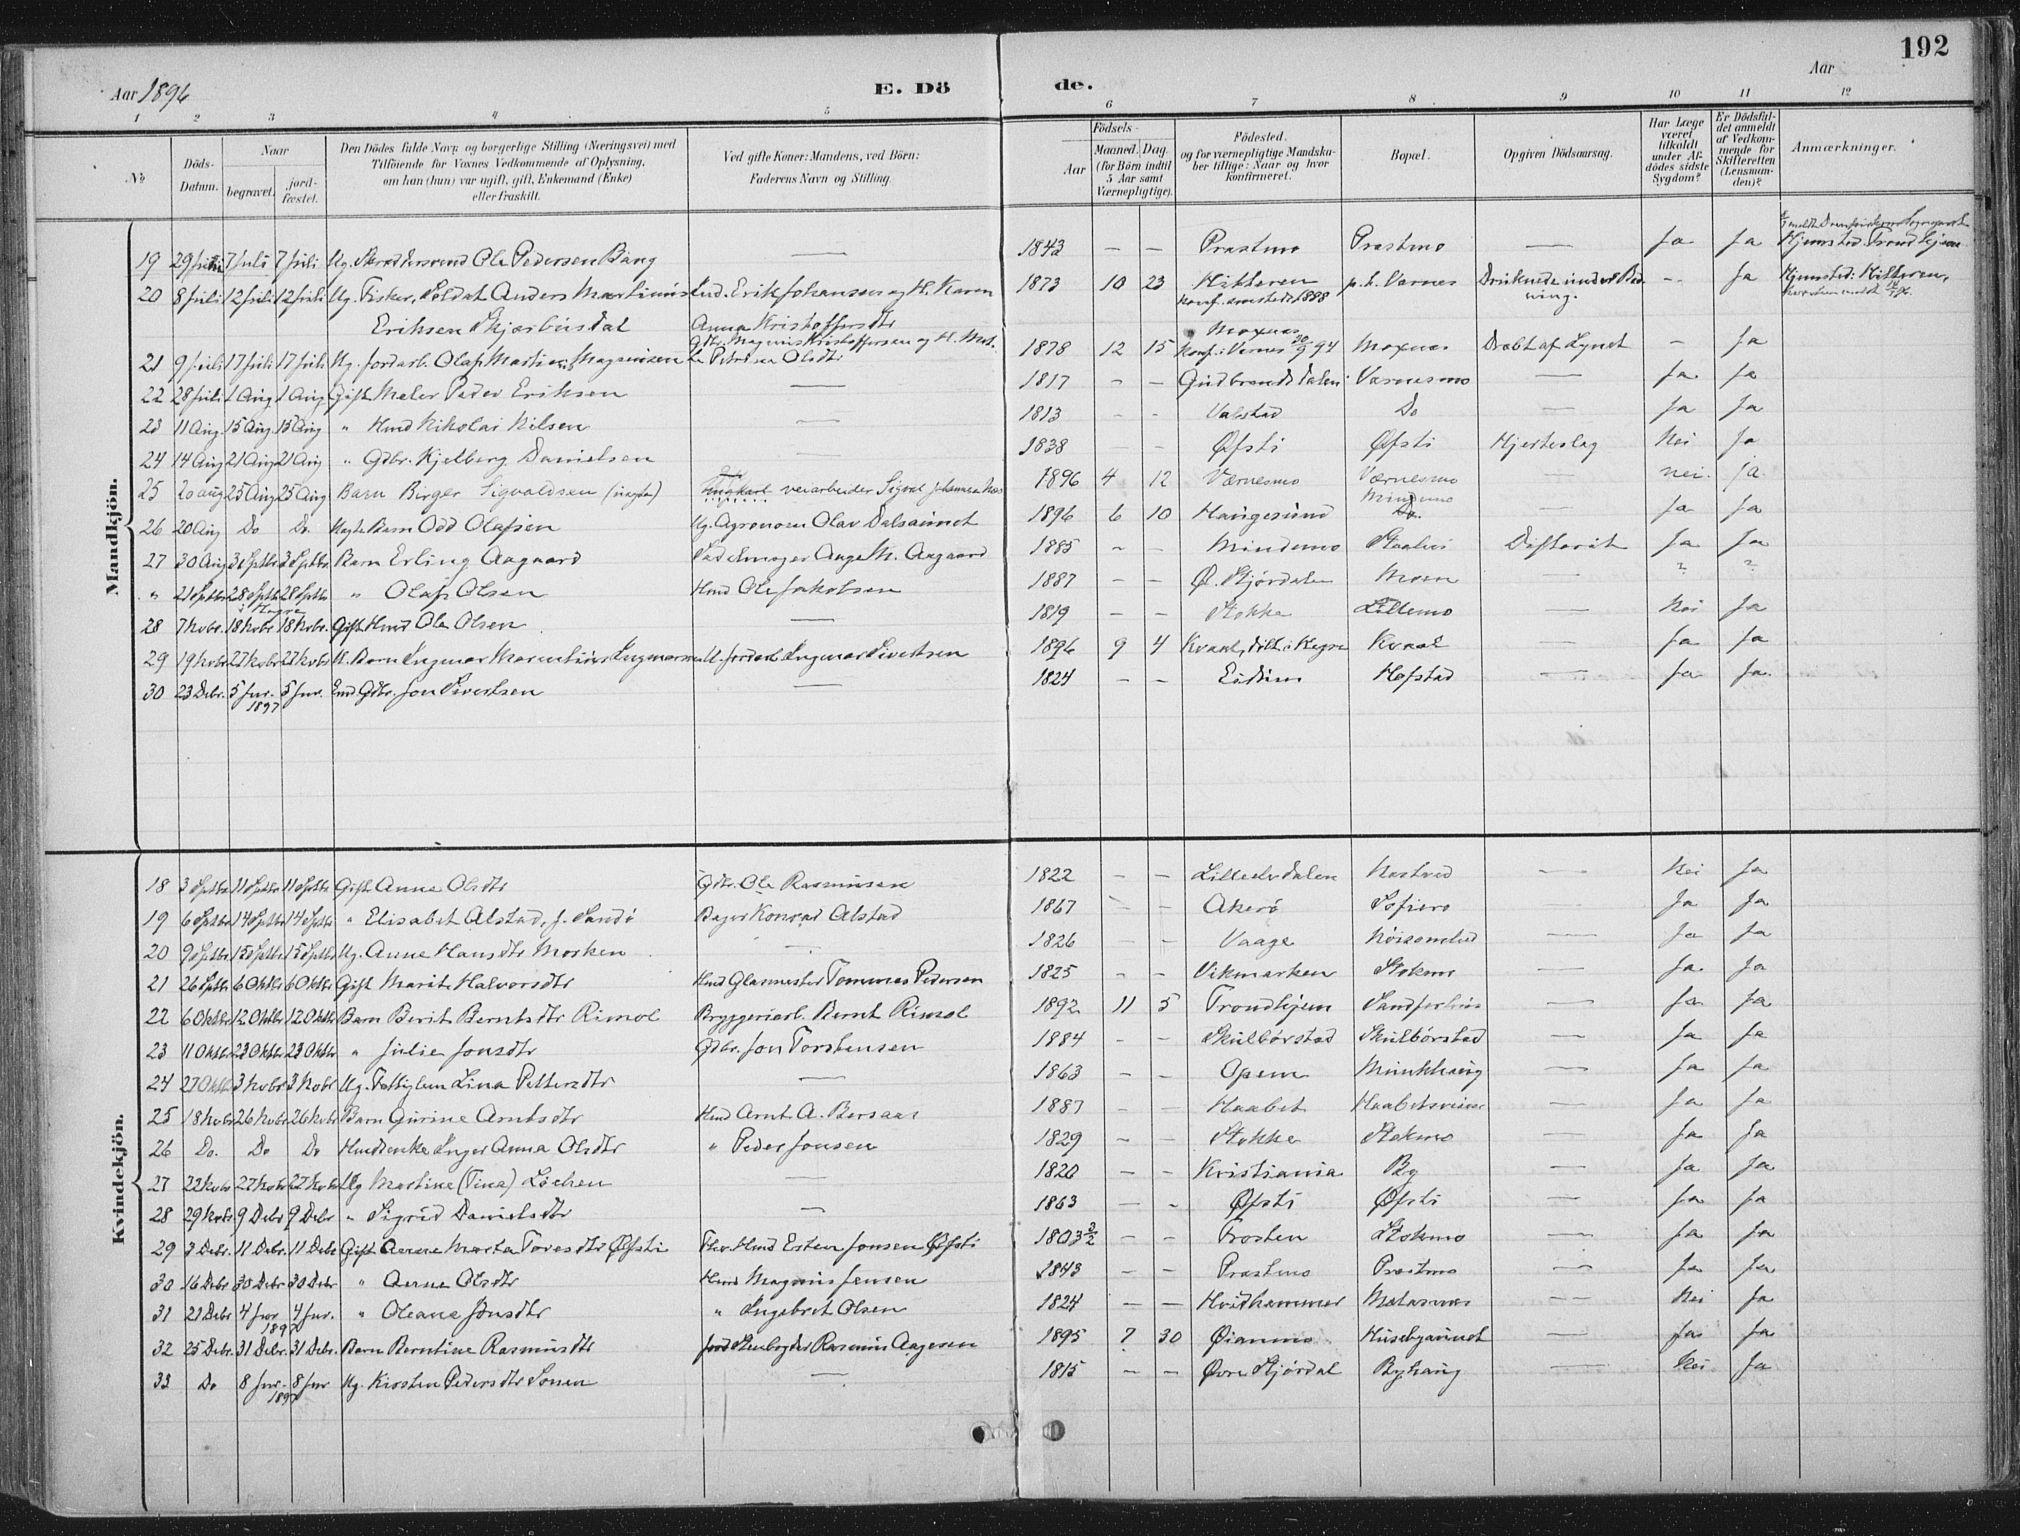 192
Aar 1896
E. Dö
de.
Aar
1 2 3 4 5 6 7 8 9 10 11 12
No
Döds-Datum.
Naar
begravet.
jord-fæstet.
Den Dödes fulde Navn og borgerlige Stilling (Næringsvei) med
Tilföiende for Voxnes Vedkommende af Oplysning,
om han (hun) var ugift, gift, Enkemand (Enke)
eller fraskilt.
Ved gifte Koner: Mandens, ved Börn:
Faderens Navn og Stilling.
Aar
Födsels-
Maaned. Dag.
(for Börn indtil 5 Aar samt Værnepligtige).
Födested,
og for værnepligtige Mandskaber tillige: Naar og hvor konfirmeret.
Bopæl.
Opgiven Dödsaarsag.
Har Læge været tilkaldt under Afdödes sidste Sygdom?
Er Dödsfaldet anmeldt af Vedkommende for Skifteretten (Lensmanden)?
Anmærkninger.
Mandkjön.
19 29 Juni 7 Juli 7 Juli Ug. Skræddersvend Ole Pedersen Bang — 1843 — — Præstmo Præstmo — Ja Ja Hjemsted: Trondhjem
20 8 Juli 12 Juli 12 Juli Ug. Fisker, Soldat Anders Martinius Ind. Erik Johansen og H. Karen 1873 10 23 Hitteren p.t. Værnes Druknede under Badning. – Ja Hjemsted: Hitteren,
Eriksen Skjærbusdal Anna Kristoffersdtr Konf. 1888
21 9 Juli 17 Juli 17 Juli Ug. Jordarb. Olaf Martin Magnusen Gbr. Magnus Kristoffersen og H. Petrine Olsdtr 1878 12 15 Moxnes Konf. i Værnes 30/9 94 Moxnes Dræbt af Lynet – Ja
22 28 Juli 1 Aug 1 Aug Gift Maler Peder Eriksen — 1817 – – Gudbrandsdalen Værnesmo — Ja Ja
23 11 Aug. 15 Aug. 15 Aug " Hmd Nikolai Nilsen — 1813 – – Valstad Do — Ja Ja
24 14 Aug 21 Aug 21 Aug " Gdbr. Kjelberg Danielsen — 1838 – – Øfsti Øfsti Hjerteslag Nei Ja
25 20 aug 25 Aug 25 Aug Barn Birger Sigvaldsen (uægte) veiarbeider Sigval Johannesen 1896 4 12 Værnesmo Værnesmo — nei. ja
26 20 Aug Do Do. Uægte Barn Odd Olafsen Ug. Agronom Olav Dalsaunet 1896 6 10 Haugesund Mindemo — Ja Ja
27 30 Aug 3 Septbr 3 Septbr Barn Erling Aagaard Aage M. Aagaard 1885 – – Mindemo Difterit Ja Ja
" 21 Septbr 28 Septbr 28 Septbr " Olaf Olsen Hmd Ole Jakobsen 1887 – – Ø. Stjørdalen Moen — ? ?
i Hegre
28 7 Novbr. 18 Novbr 18 Novbr. Gift Hmd Ole Olsen — 1819 – – Stokke Lillemo — Nei Ja
29 19 Novbr 27 Novbr 27 Novbr U. Barn Ingmar Marentius Ingmarsen U. Jordarb Ingmar Sivertsen 1896 9 4 Kvaal Kvaal — Ja Ja
30 23 Debr. 5 Jnr. 1897 5 Jnr. Emd. Gdbr. Jon Sivertsen — 1824 – – Eidum Hofstad — Ja Ja
Kvindekjön.
18 3 Septbr 11 Septbr 11 Septbr Gift Anne Olsdtr Gdbr. Ole Rasmussen 1822 – – Lilledalen Næstved — Nei Ja
19 6 Septbr 14 Septbr 14 Septbr " Elisabet Alstad, f. Sandø Bager Konrad Alstad 1867 – – Akerø Sofiero — Ja Ja
20 9 Septbr 15 Septbr 15 Septbr Ug. Anne Hansdtr Morken — 1826 – – Vaage Nøisomhed — Ja Ja
21 26 Septbr 6 Oktbr 6 Oktbr Gift Marit Halvorsdtr Hmd Glasmester Tommas Pedersen 1825 – – Vikmarken Stokmo — Ja Ja
22 6 Oktbr 12 Oktbr 12 Oktbr Barn Berit Berntsdtr Rimol Bryggeriarb. Bernt Rimol 1892 11 5 Trondhjem Sandferhus — Ja Ja
23 11 Oktbr 23 Oktbr 23 Oktbr " Julie Jonsdtr Gdbr. Jon Torstensen 1884 – – Skulbørstad Skulbørstad — Ja Ja
24 27 Oktbr 3 Novbr 3 Novbr Ug. Fattiglem Lina Pettersdtr — 1863 – – Opem Munkhaug — Ja Ja
25 18 Novbr 26 Novbr 26 Novbr Barn Gurine Arntsdtr Hmd Arnt A. Bersaas 1887 – – Haabet — Ja Ja
26 Do. Do Do Hmdsenke Inger Anna Olsdtr " Peder Jonsen 1829 – – Stokke Stokmo — Ja Ja
27 22 Novbr 27 Novbr 27 Novbr Ug Martine (Tina) Løchen — 1820 – – Kristiania By — Ja Ja
28 29 Novbr 9 Debr 9 Debr " Sigrid Danielsdtr — 1863 – – Øfsti Øfsti — Ja Ja
29 3 Debr. 11 Debr. 11 Debr Gift Anne Marta Toresdtr Øfsti Hmd Esten Jonsen Øfsti 1803 3/2 – – Frosten Stokmo — Ja Ja
30 16 Debr 30 Debr 30 Debr " Anne Olsdtr Hmd Magnus Jensen 1843 – – Præstmo Præstmo — Ja Ja
31 21 Debr 4 Jnr 1897 4 Jnr. " Oleana Jonsdtr " Ingebret Olsen 1824 – – Hvidhammer — Nei Ja
32 25 Debr. 31 Debr. 31 Debr. Barn Berntine Rasmusdtr Rasmus Aagesen 1895 7 30 Øianmo Husebyaunet — Ja Ja
33 Do 8 Jnr. 1897 8 Jnr Ug. Kirsten Pedersdtr — 1815 – – Øvre Stjørdal Byhaug — Nei Ja